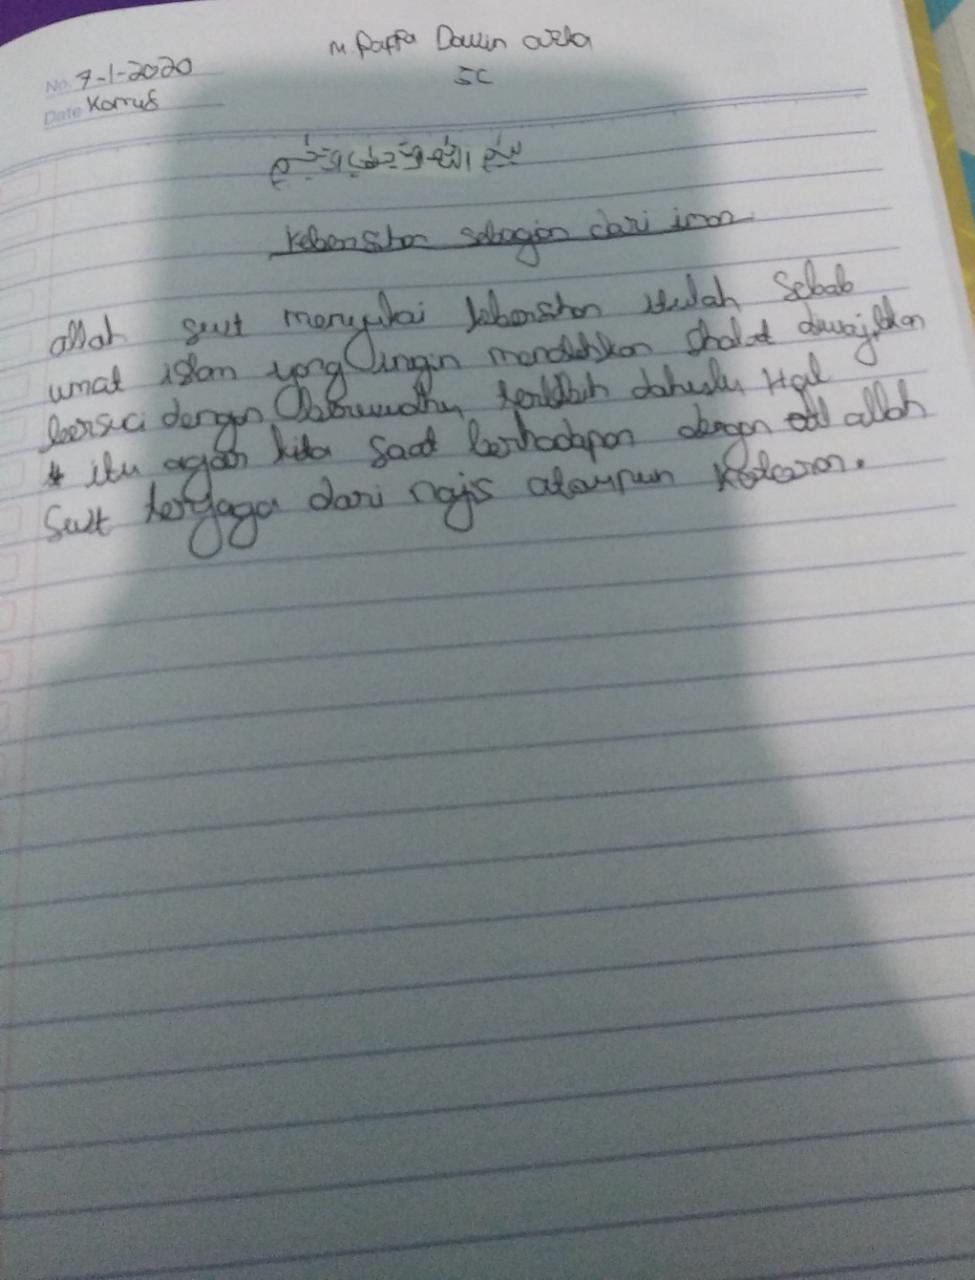 M. Raffa Dawin arta
5C
No. 7-1-2020
Date Kamis
Kebersihan sebagian dari iman
allah swt menyukai kebersihan itulah sebab
umat islam yang ingin mendirikan shalat diwajibkan
bersuci dengan berwudhu terlebih dahulu Hal
itu agar kita saat berhadapan dengan allah
Swt terjaga dari najis ataupun kotoran.